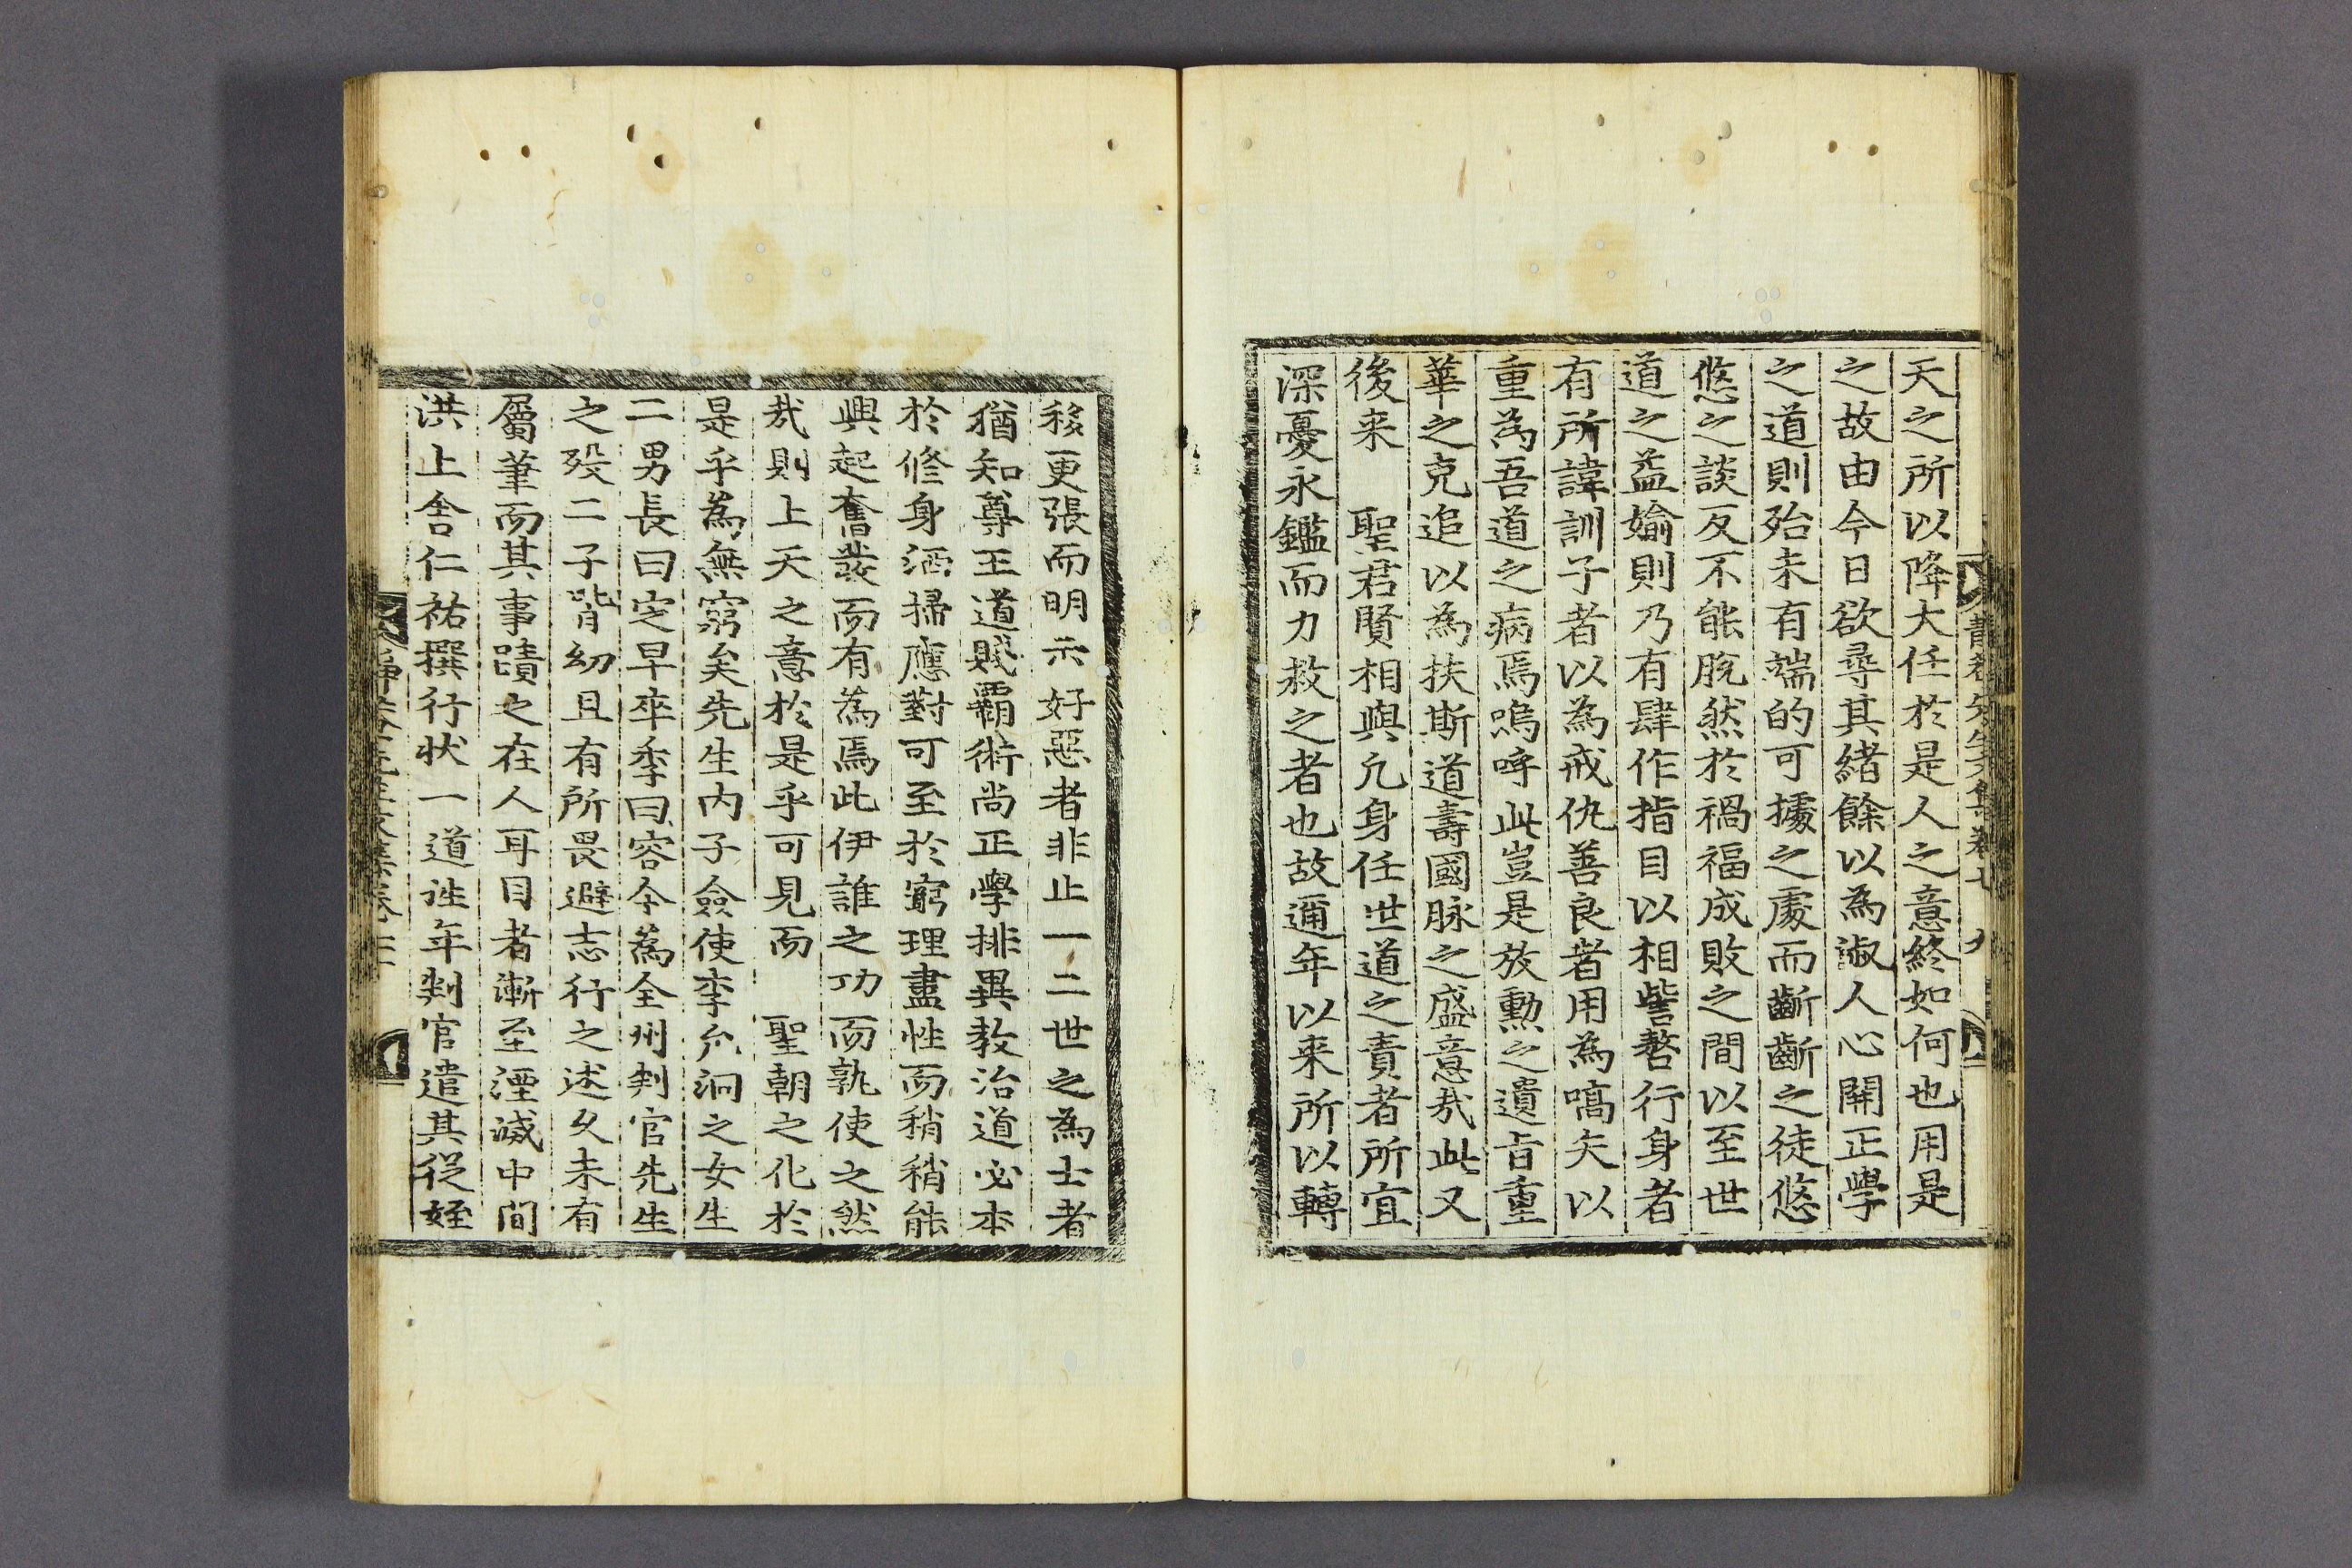 天之所以降大任於是人之意終如何也用是
之故由今日欲尋其緖餘以為淑人心開正學
之道則殆未有端的可據之處而齗齗之徒悠
悠之談反不能脫然於禍福成敗之間以至世
道之益婾則乃有肆作指目以相訾謷行身者
有所諱訓子者以為戒仇善良者用為嚆矢以
重為吾道之病焉嗚呼此豈是放勲之遺旨重
華之克追以為扶斯道壽國脉之盛意㢤此又
後来 聖君賢相與凡身任世道之責者所宜
深憂永鑑而力救之者也故邇年以来所以轉
移更張而明示好惡者非止一二世之為士者
猶知尊王道賤覇術尚正學排異教治道必本
於修身洒掃應對可至於窮理盡性而稍稍能
興起奮發而有為焉此伊誰之功而孰使之然
㢤則上天之意於是乎可見而 聖朝之化於
是乎為無窮矣先生內子僉使李允泂之女生
二男長曰定早卒季曰容今為全州判官先生
之歿二子皆幼且有所畏避志行之述久未有
屬筆而其事蹟之在人耳目者漸至湮滅中間
洪上舍仁祐撰行状一道徃年判官遣其從姪